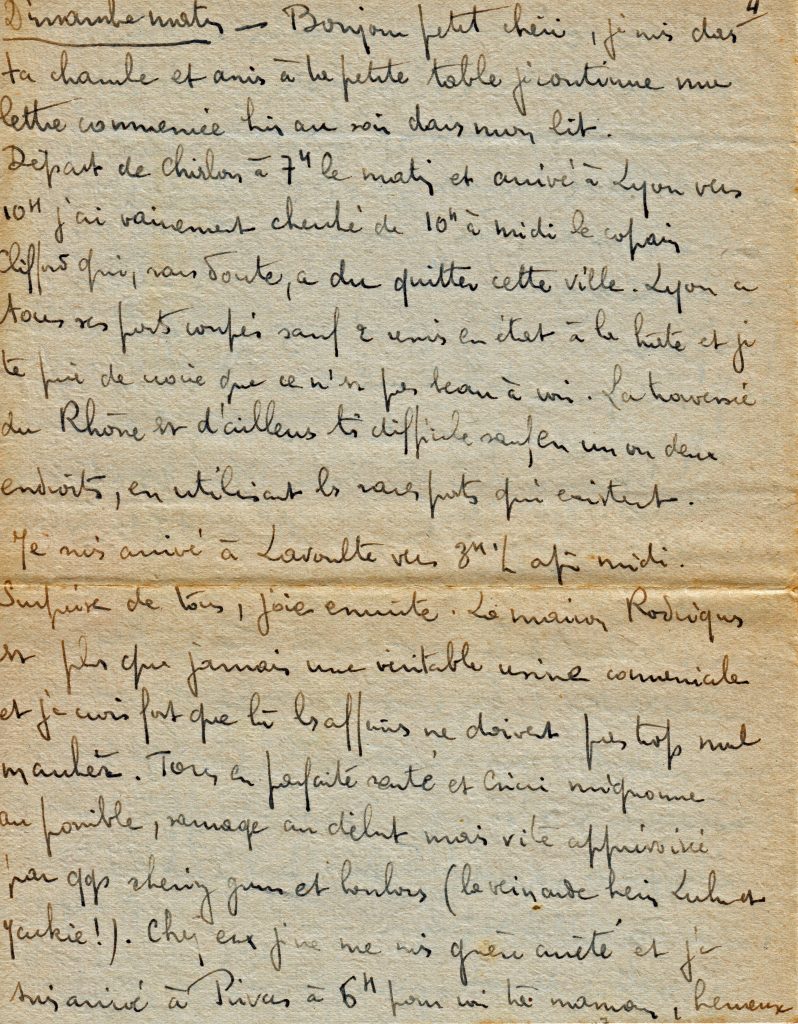 4
Dimanche matin — Bonjour petit chéri, je suis dans
ta chambre et assis à ta petite table je continue une
lettre commencée hier au soir dans mon lit.
Départ de Chalon à 7H le matin et arrivé à Lyon vers
10H j'ai vainement cherché de 10H à midi le copain
Clifford qui, sans doute, a du quitter cette ville. Lyon a
tous ses ponts coupés sauf 2 remis en état à la hâte et je
te prie de croire que ce n'est pas beau à voir. La traversée
du Rhône est d'ailleurs très difficile sauf, en un ou deux
endroits, en utilisant les rares ponts qui existent.
Je suis arrivé à Lavoulte vers 3H ½ après midi.
Surprise de tous, joie ensuite. La maison Rodrigues
est plus que jamais une véritable usine commerciale
et je crois fort que là les affaires ne doivent pas trop mal
marcher. Tous en parfaite santé et Cricri mignonne
au possible, sauvage au début mais vite apprivoisée
par qqs chewing gum et bonbons (la veinarde hein Lulu et
Jackie!). Chez eux je ne me suis guère arrêté et je
suis arrivé à Privas à 6H pour voir ta maman, heureux